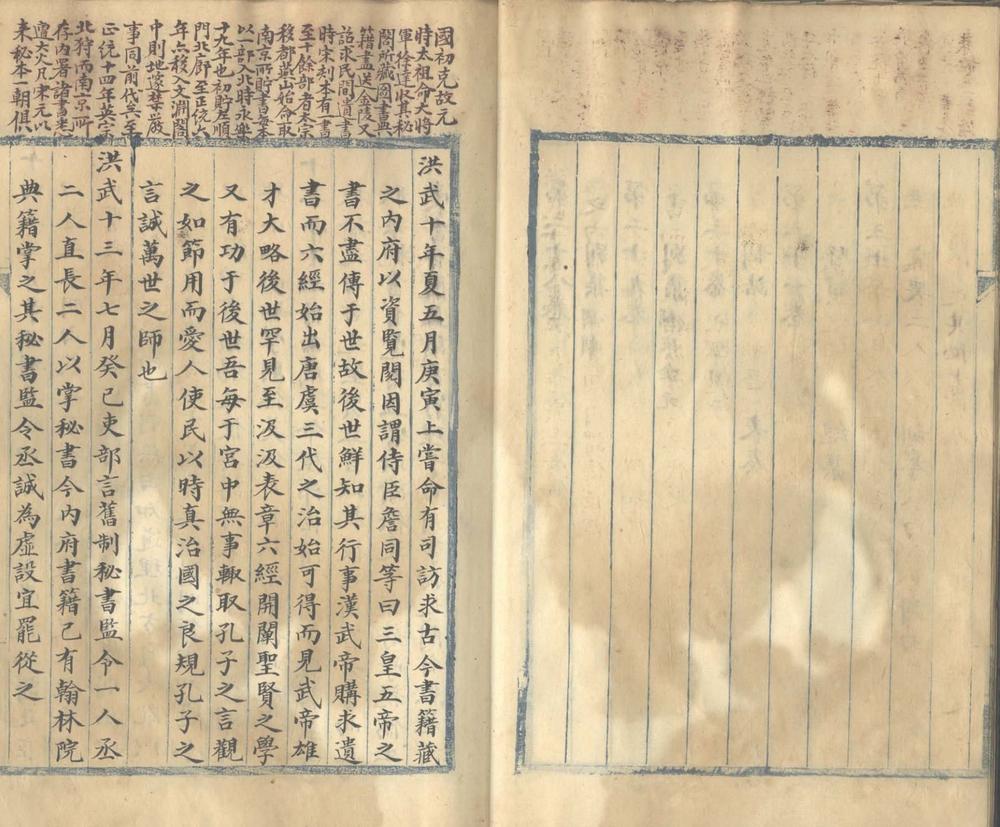 國初克故元
時太祖命大将
軍徐達收其秘
閣所藏圖書典
籍盡送金陵又
詔求民間遺書
時宋刻本有一書
至十餘部者太宗
移都燕山始命取
南京所貯書每本
以一部入北時永樂
十九年也初貯左順
門北廊至正統六
年亦移入文淵閣
中則地邃禁嚴
事同前代矣至
正統十四年英宗
北狩而南京所
存内署諸書悉
遭大火凡宋元以
来秘本一朝俱
洪武十年夏五月庚寅上嘗命有司訪求古今書籍藏
之内府以資覧閲因謂侍臣詹同等曰三皇五帝之
書不盡傳于世故後世鮮知其行事漢武帝購求遺
書而六經始出唐虞三代之治始可得而見武帝雄
才大略後世罕見至汲汲表章六經開闡聖賢之學
又有功于後世吾每于宮中無事輙取孔子之言觀
之如節用而愛人使民以時真治國之良規孔子之
言誠萬世之師也
洪武十三年七月癸已吏部言舊制秘書監令一人丞
二人直長二人以掌秘書今内府書籍已有翰林院
典籍掌之其秘書監令丞誠為虛設宜罷從之